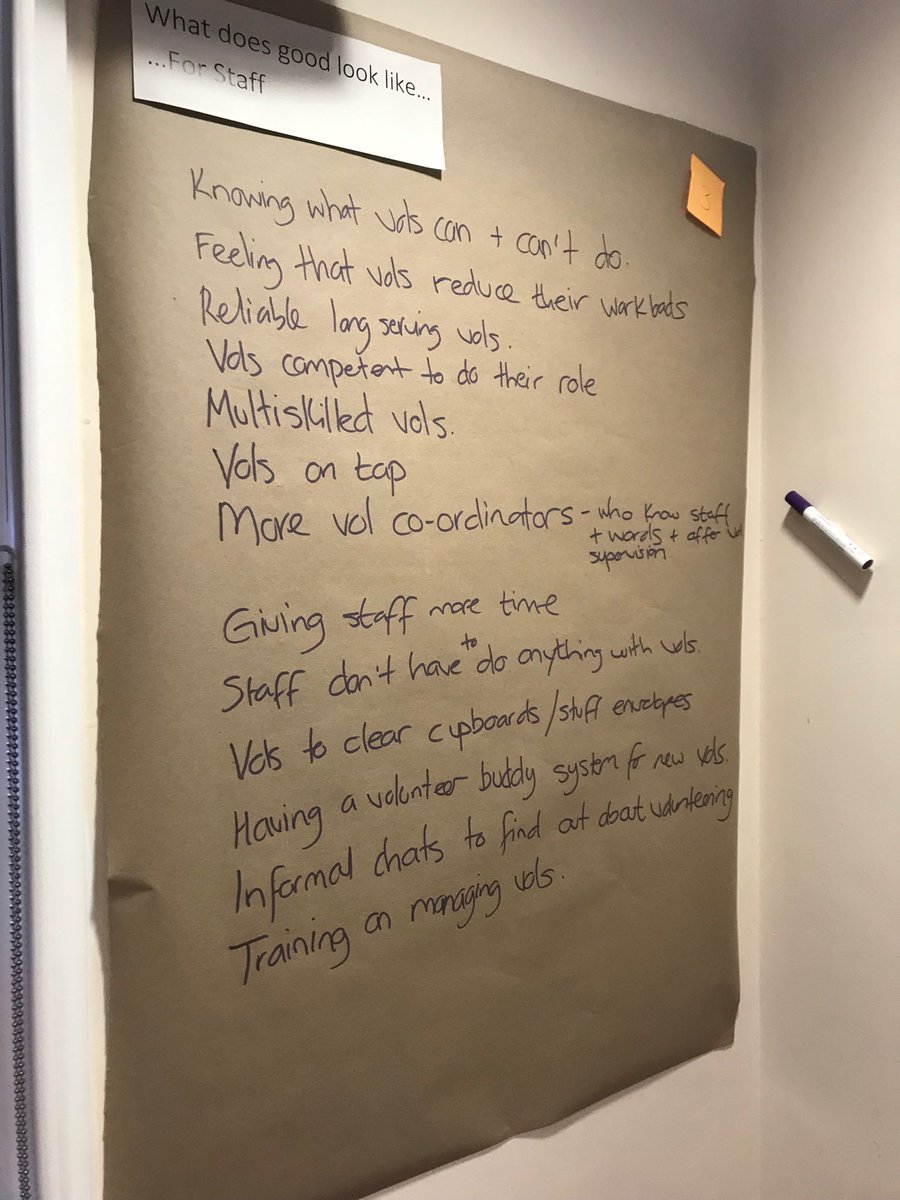 What does good look like...
...For Staff
3
Knowing what vols can + can't do.
Feeling that vols reduce their workloads
Reliable long serving vols.
Vols competent to do their role
Multiskilled vols.
Vols on tap
More vol co-ordinators - who know staff
+ wards + offer vol
supervision
Giving staff more time
Staff don't have to do anything with vols.
Vols to clear cupboards/stuff envelopes
Having a volunteer buddy system for new vols.
Informal chats to find out about volunteering
Training on managing vols.